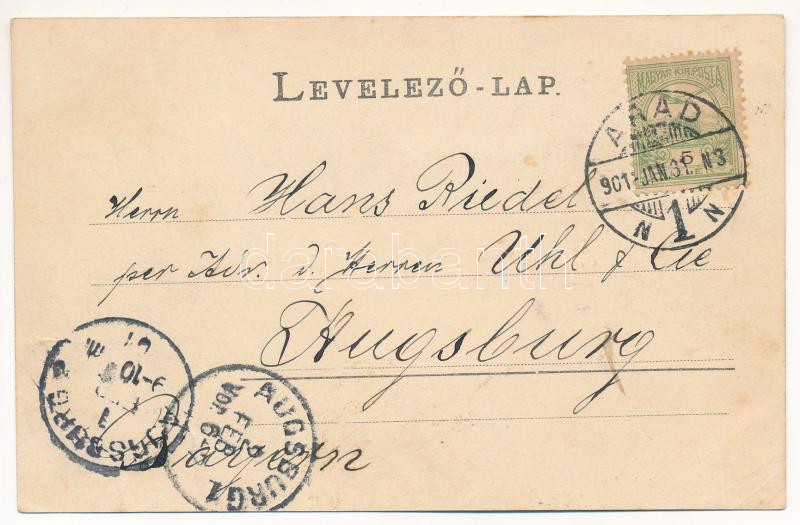 LEVELEZŐ-LAP.
MAGYAR KIR. POSTA
ARAD
901 JAN. 31. N3
N 1 N
Herrn Hans Riedel
per Adr. d. Herren Uhl & Cie
Augsburg
Bayern
AUGSBURG 2
AUGSBURG 1
FEB
VOR
darabanth